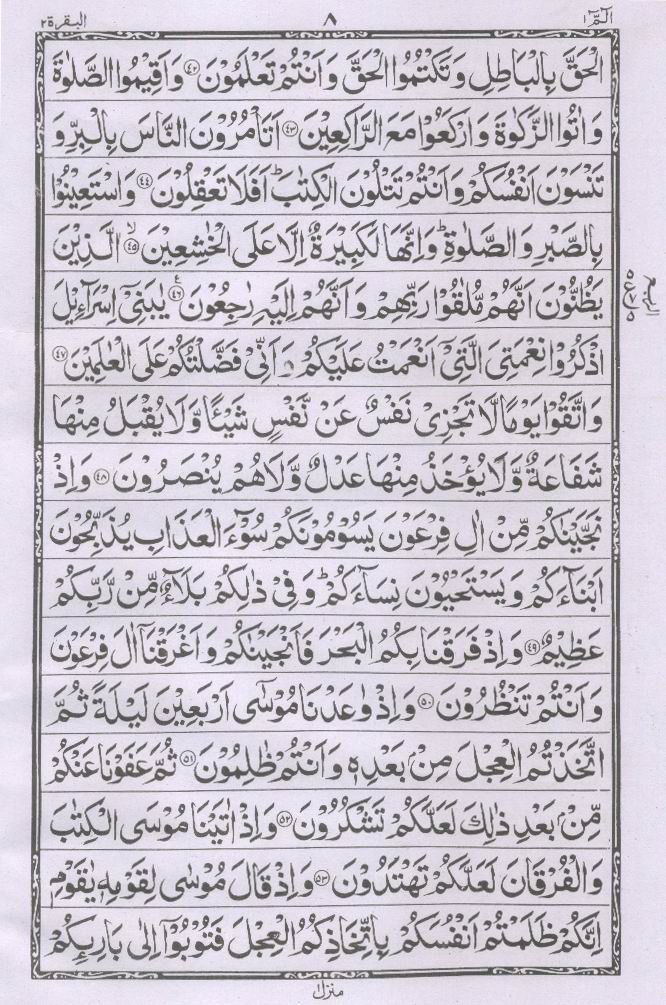 الٓمّٓ ١
٨
البقرة ٢
الْحَقَّ بِالْبَاطِلِ وَتَكْتُمُوا الْحَقَّ وَاَنْتُمْ تَعْلَمُوْنَ ﴿۴۲﴾ وَاَقِيْمُوا الصَّلٰوةَ
وَاٰتُوا الزَّكٰوةَ وَارْكَعُوْا مَعَ الرَّاكِعِيْنَ ﴿۴۳﴾ اَتَاْمُرُوْنَ النَّاسَ بِالْبِرِّ وَ
تَنْسَوْنَ اَنْفُسَكُمْ وَاَنْتُمْ تَتْلُوْنَ الْكِتٰبَ ؕ اَفَلَا تَعْقِلُوْنَ ﴿۴۴﴾ وَاسْتَعِيْنُوْا
بِالصَّبْرِ وَالصَّلٰوةِ ؕ وَاِنَّهَا لَكَبِيْرَةٌ اِلَّا عَلَى الْخٰشِعِيْنَ ۙ﴿۴۵﴾ الَّذِيْنَ
يَظُنُّوْنَ اَنَّهُمْ مُّلٰقُوْا رَبِّهِمْ وَاَنَّهُمْ اِلَيْهِ رٰجِعُوْنَ ﴿۴۶﴾ ع يٰبَنِيْۤ اِسْرَآءِيْلَ
اذْكُرُوْا نِعْمَتِيَ الَّتِيْۤ اَنْعَمْتُ عَلَيْكُمْ وَاَنِّيْ فَضَّلْتُكُمْ عَلَى الْعٰلَمِيْنَ ﴿۴۷﴾
وَاتَّقُوْا يَوْمًا لَّا تَجْزِيْ نَفْسٌ عَنْ نَّفْسٍ شَيْـًٔا وَّلَا يُقْبَلُ مِنْهَا
شَفَاعَةٌ وَّلَا يُؤْخَذُ مِنْهَا عَدْلٌ وَّلَا هُمْ يُنْصَرُوْنَ ﴿۴۸﴾ وَاِذْ
نَجَّيْنٰكُمْ مِّنْ اٰلِ فِرْعَوْنَ يَسُوْمُوْنَكُمْ سُوْٓءَ الْعَذَابِ يُذَبِّحُوْنَ
اَبْنَآءَكُمْ وَيَسْتَحْيُوْنَ نِسَآءَكُمْ ؕ وَفِيْ ذٰلِكُمْ بَلَآءٌ مِّنْ رَّبِّكُمْ
عَظِيْمٌ ﴿۴۹﴾ وَاِذْ فَرَقْنَا بِكُمُ الْبَحْرَ فَاَنْجَيْنٰكُمْ وَاَغْرَقْنَاۤ اٰلَ فِرْعَوْنَ
وَاَنْتُمْ تَنْظُرُوْنَ ﴿۵۰﴾ وَاِذْ وٰعَدْنَا مُوْسٰۤى اَرْبَعِيْنَ لَيْلَةً ثُمَّ
اتَّخَذْتُمُ الْعِجْلَ مِنْۢ بَعْدِهٖ وَاَنْتُمْ ظٰلِمُوْنَ ﴿۵۱﴾ ثُمَّ عَفَوْنَا عَنْكُمْ
مِّنْۢ بَعْدِ ذٰلِكَ لَعَلَّكُمْ تَشْكُرُوْنَ ﴿۵۲﴾ وَاِذْ اٰتَيْنَا مُوْسَى الْكِتٰبَ
وَالْفُرْقَانَ لَعَلَّكُمْ تَهْتَدُوْنَ ﴿۵۳﴾ وَاِذْ قَالَ مُوْسٰى لِقَوْمِهٖ يٰقَوْمِ
اِنَّكُمْ ظَلَمْتُمْ اَنْفُسَكُمْ بِاتِّخَاذِكُمُ الْعِجْلَ فَتُوْبُوْۤا اِلٰى بَارِئِكُمْ
منزل ١